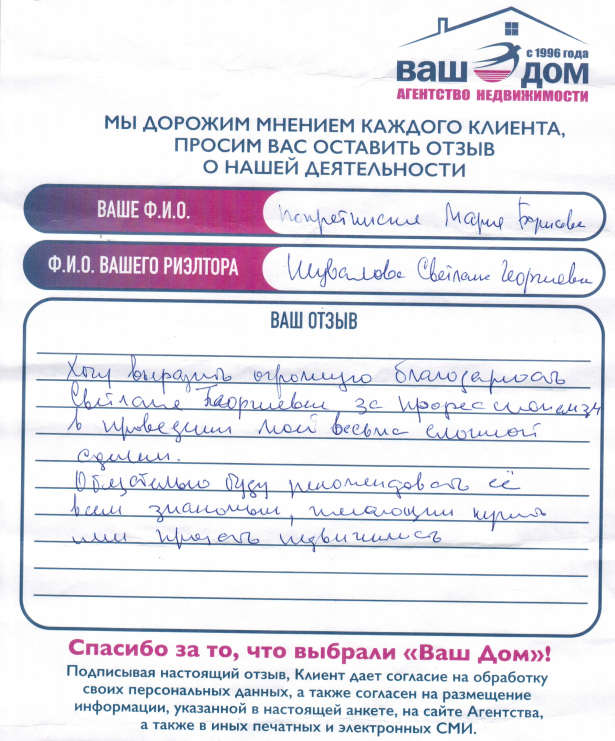 с 1996 года
ваш дом
АГЕНТСТВО НЕДВИЖИМОСТИ
МЫ ДОРОЖИМ МНЕНИЕМ КАЖДОГО КЛИЕНТА,
ПРОСИМ ВАС ОСТАВИТЬ ОТЗЫВ
О НАШЕЙ ДЕЯТЕЛЬНОСТИ
ВАШЕ Ф.И.О.
Мария Борисовна
Ф.И.О. ВАШЕГО РИЭЛТОРА
Шувалова Светлана Георгиевна
ВАШ ОТЗЫВ
Хочу выразить огромную благодарность
Светлане Георгиевне за профессионализм
в проведении моей весьма сложной
сделки.
Обязательно буду рекомендовать её
всем знакомым, желающим купить
или продать недвижимость
Спасибо за то, что выбрали «Ваш Дом»!
Подписывая настоящий отзыв, Клиент дает согласие на обработку
своих персональных данных, а также согласен на размещение
информации, указанной в настоящей анкете, на сайте Агентства,
а также в иных печатных и электронных СМИ.